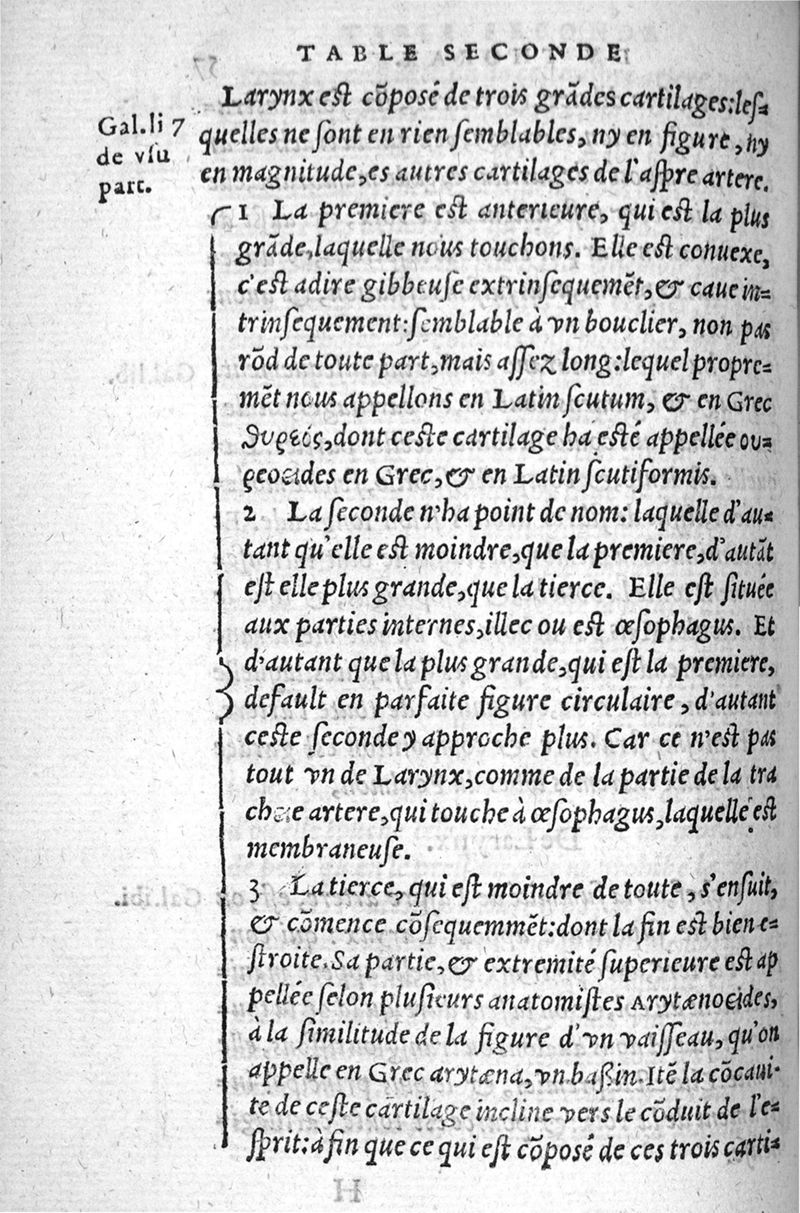 TABLE SECONDE
Larynx est cõposé de trois grãdes cartilages:leſ-
Gal.li 7
de vſu
part.
quelles ne ſont en rien ſemblables, ny en figure, ny
en magnitude, es autres cartilages de l'aſpre artere.
1 La premiere est anterieure, qui est la plus
grãde, laquelle nous touchons. Elle est conuexe,
c'est adire gibbeuſe extrinſequemẽt, & caue in-
trinſequement:ſemblable à vn bouclier, non pas
rõd de toute part, mais aſſez long:lequel propre-
mẽt nous appellons en Latin ſcutum, & en Grec
ϑυρεός, dont ceste cartilage ha esté appellée ου-
ρεοειdes en Grec, & en Latin ſcutiformis.
2 La ſeconde n'ha point de nom: laquelle d'au-
tant qu'elle est moindre, que la premiere, d'autãt
est elle plus grande, que la tierce. Elle est ſituée
aux parties internes, illec ou est œſophagus. Et
d'autant que la plus grande, qui est la premiere,
default en parfaite figure circulaire, d'autant
ceste ſeconde y approche plus. Car ce n'est pas
tout vn de Larynx, comme de la partie de la tra
chee artere, qui touche à œſophagus, laquelle est
membraneuſe.
3 La tierce, qui est moindre de toute, s'enſuit,
& cõmence cõſequemmẽt:dont la fin est bien e-
ſtroite. Sa partie, & extremité ſuperieure est ap
pellée ſelon pluſieurs anatomiſtes Arytænoeides,
à la ſimilitude de la figure d'vn vaiſſeau, qu'on
appelle en Grec arytæna, vn baßin. Itẽ la cõcaui-
té de ceste cartilage incline vers le cõduit de l'e-
ſprit: à fin que ce qui est cõposé de ces trois carti-